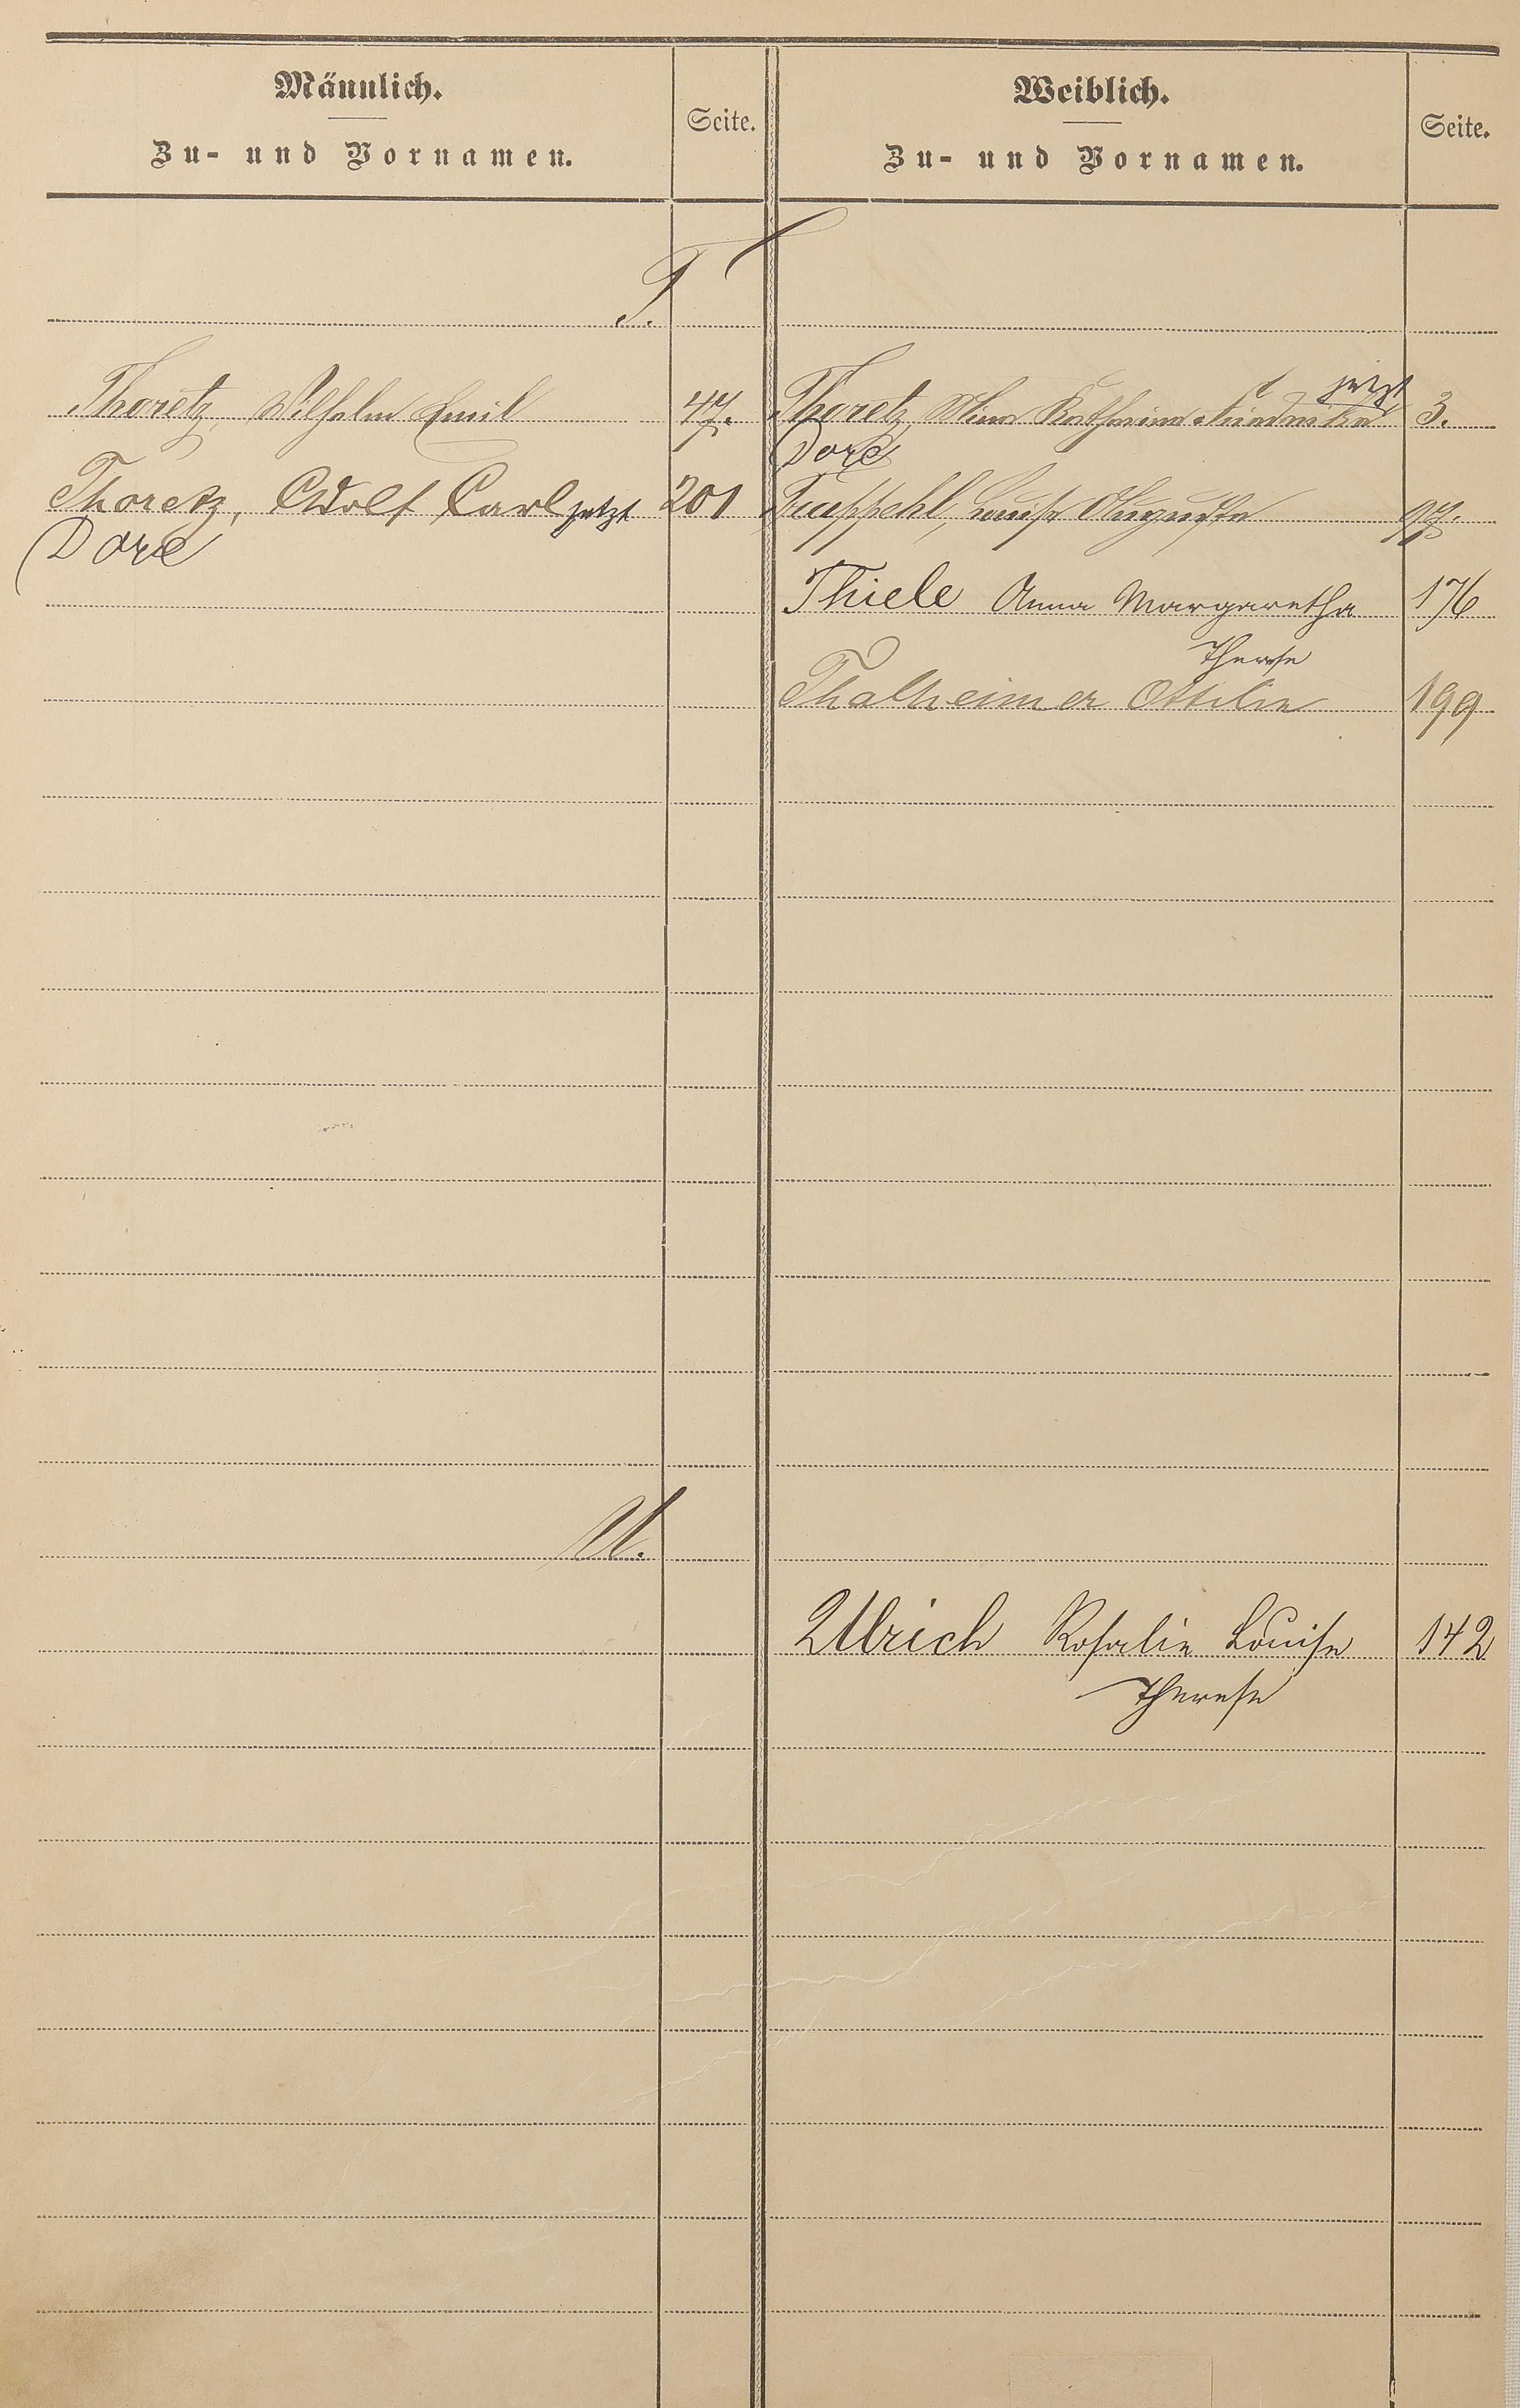 Männlich.
Zu- und Vornamen.
Seite.
Weiblich.
Zu- und Vornamen.
Seite.
T.
Thoretz, Wilhelm Emil 47.
Thoretz, Adolf Carl jetzt 201
Doré
jetzt
Thoretz, Mina Katharina Friederike 3.
Doré
Truppehl, Louise Auguste 97.
Thiele Anna Margaretha 176
Therese
Thalheimer Ottilie 199
U.
Ulrich Rosalie Louise 142
Therese